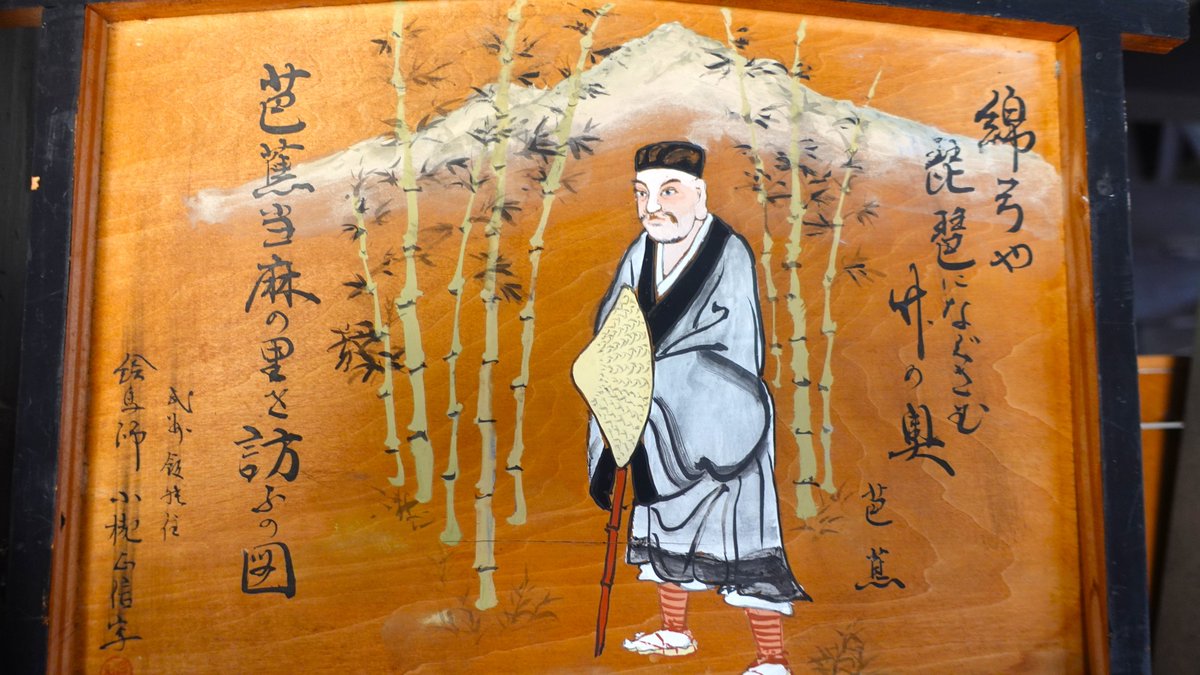 綿弓や
琵琶になぐさむ
竹の奥
芭蕉
芭蕉当麻の里を訪ふの図
武州飯能住
絵馬師 小槻正信宰